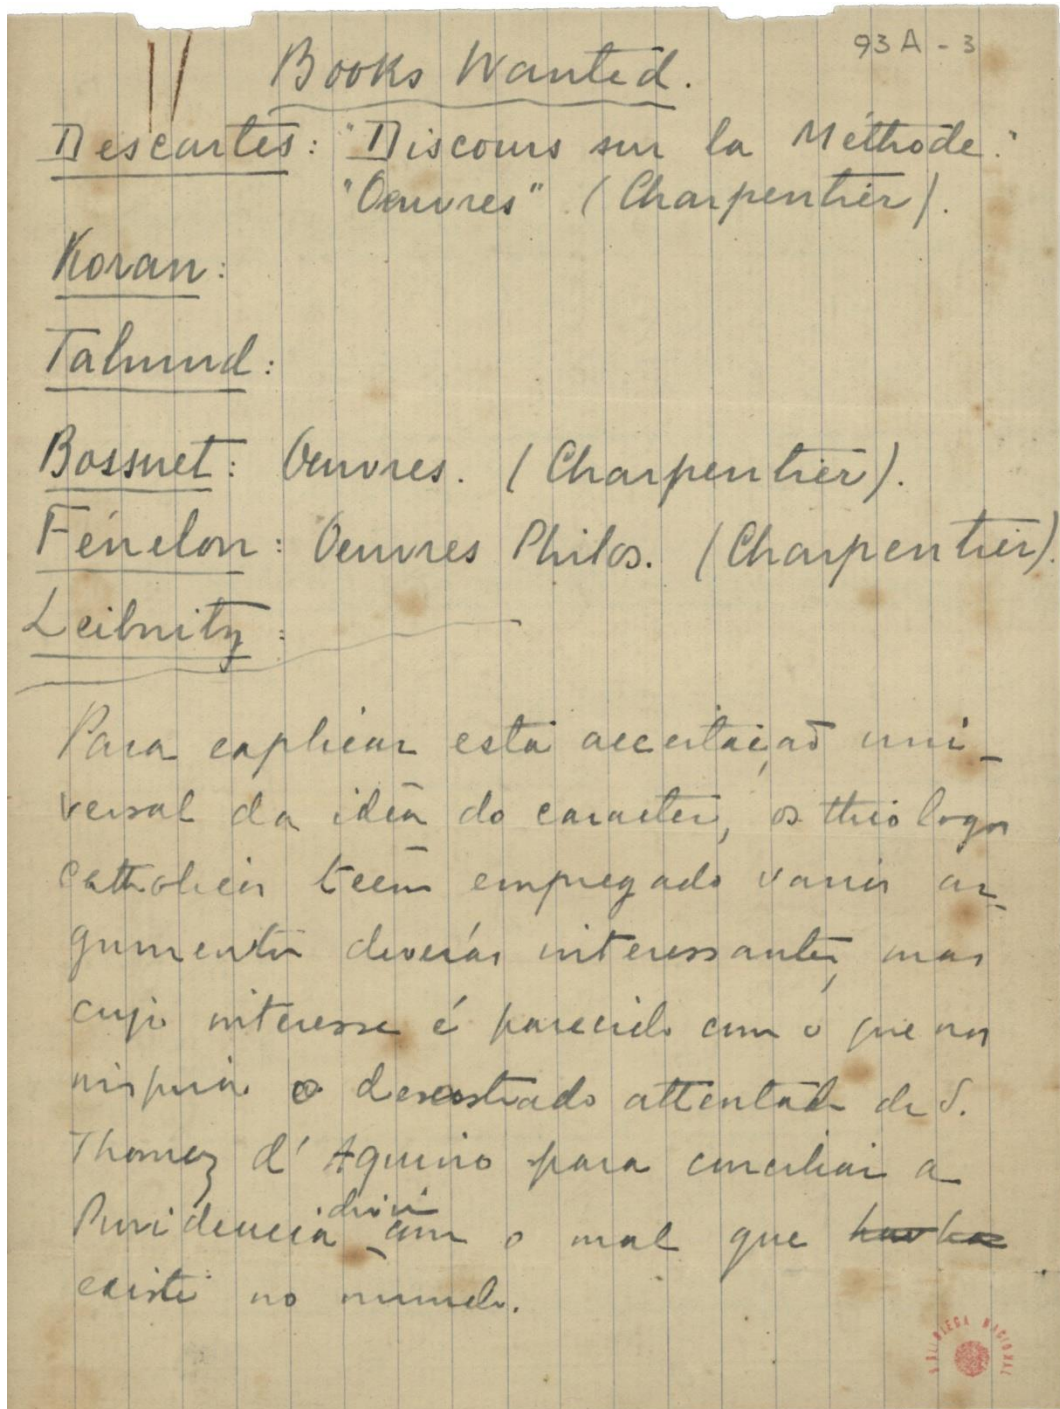 93A - 3
Books Wanted.
Descartes: "Discours sur la Méthode."
"Oeuvres" (Charpentier).
Koran:
Talmud:
Bossuet: Oeuvres. (Charpentier).
Fénelon: Oeuvres Philos. (Charpentier).
Leibnitz:
Para explicar esta acceitação uni-
versal da idéa do caracter, os theologos
catholicos teem empregado varios ar-
gumentos devéras interessantes, mas
cujo interesse é parecido com o que nos
inspira o desastrado attentado de S.
Thomaz d'Aquino para conciliar a
divi
Providencia com o mal que
existe no mundo.
BIBLIOTECA NACIONAL